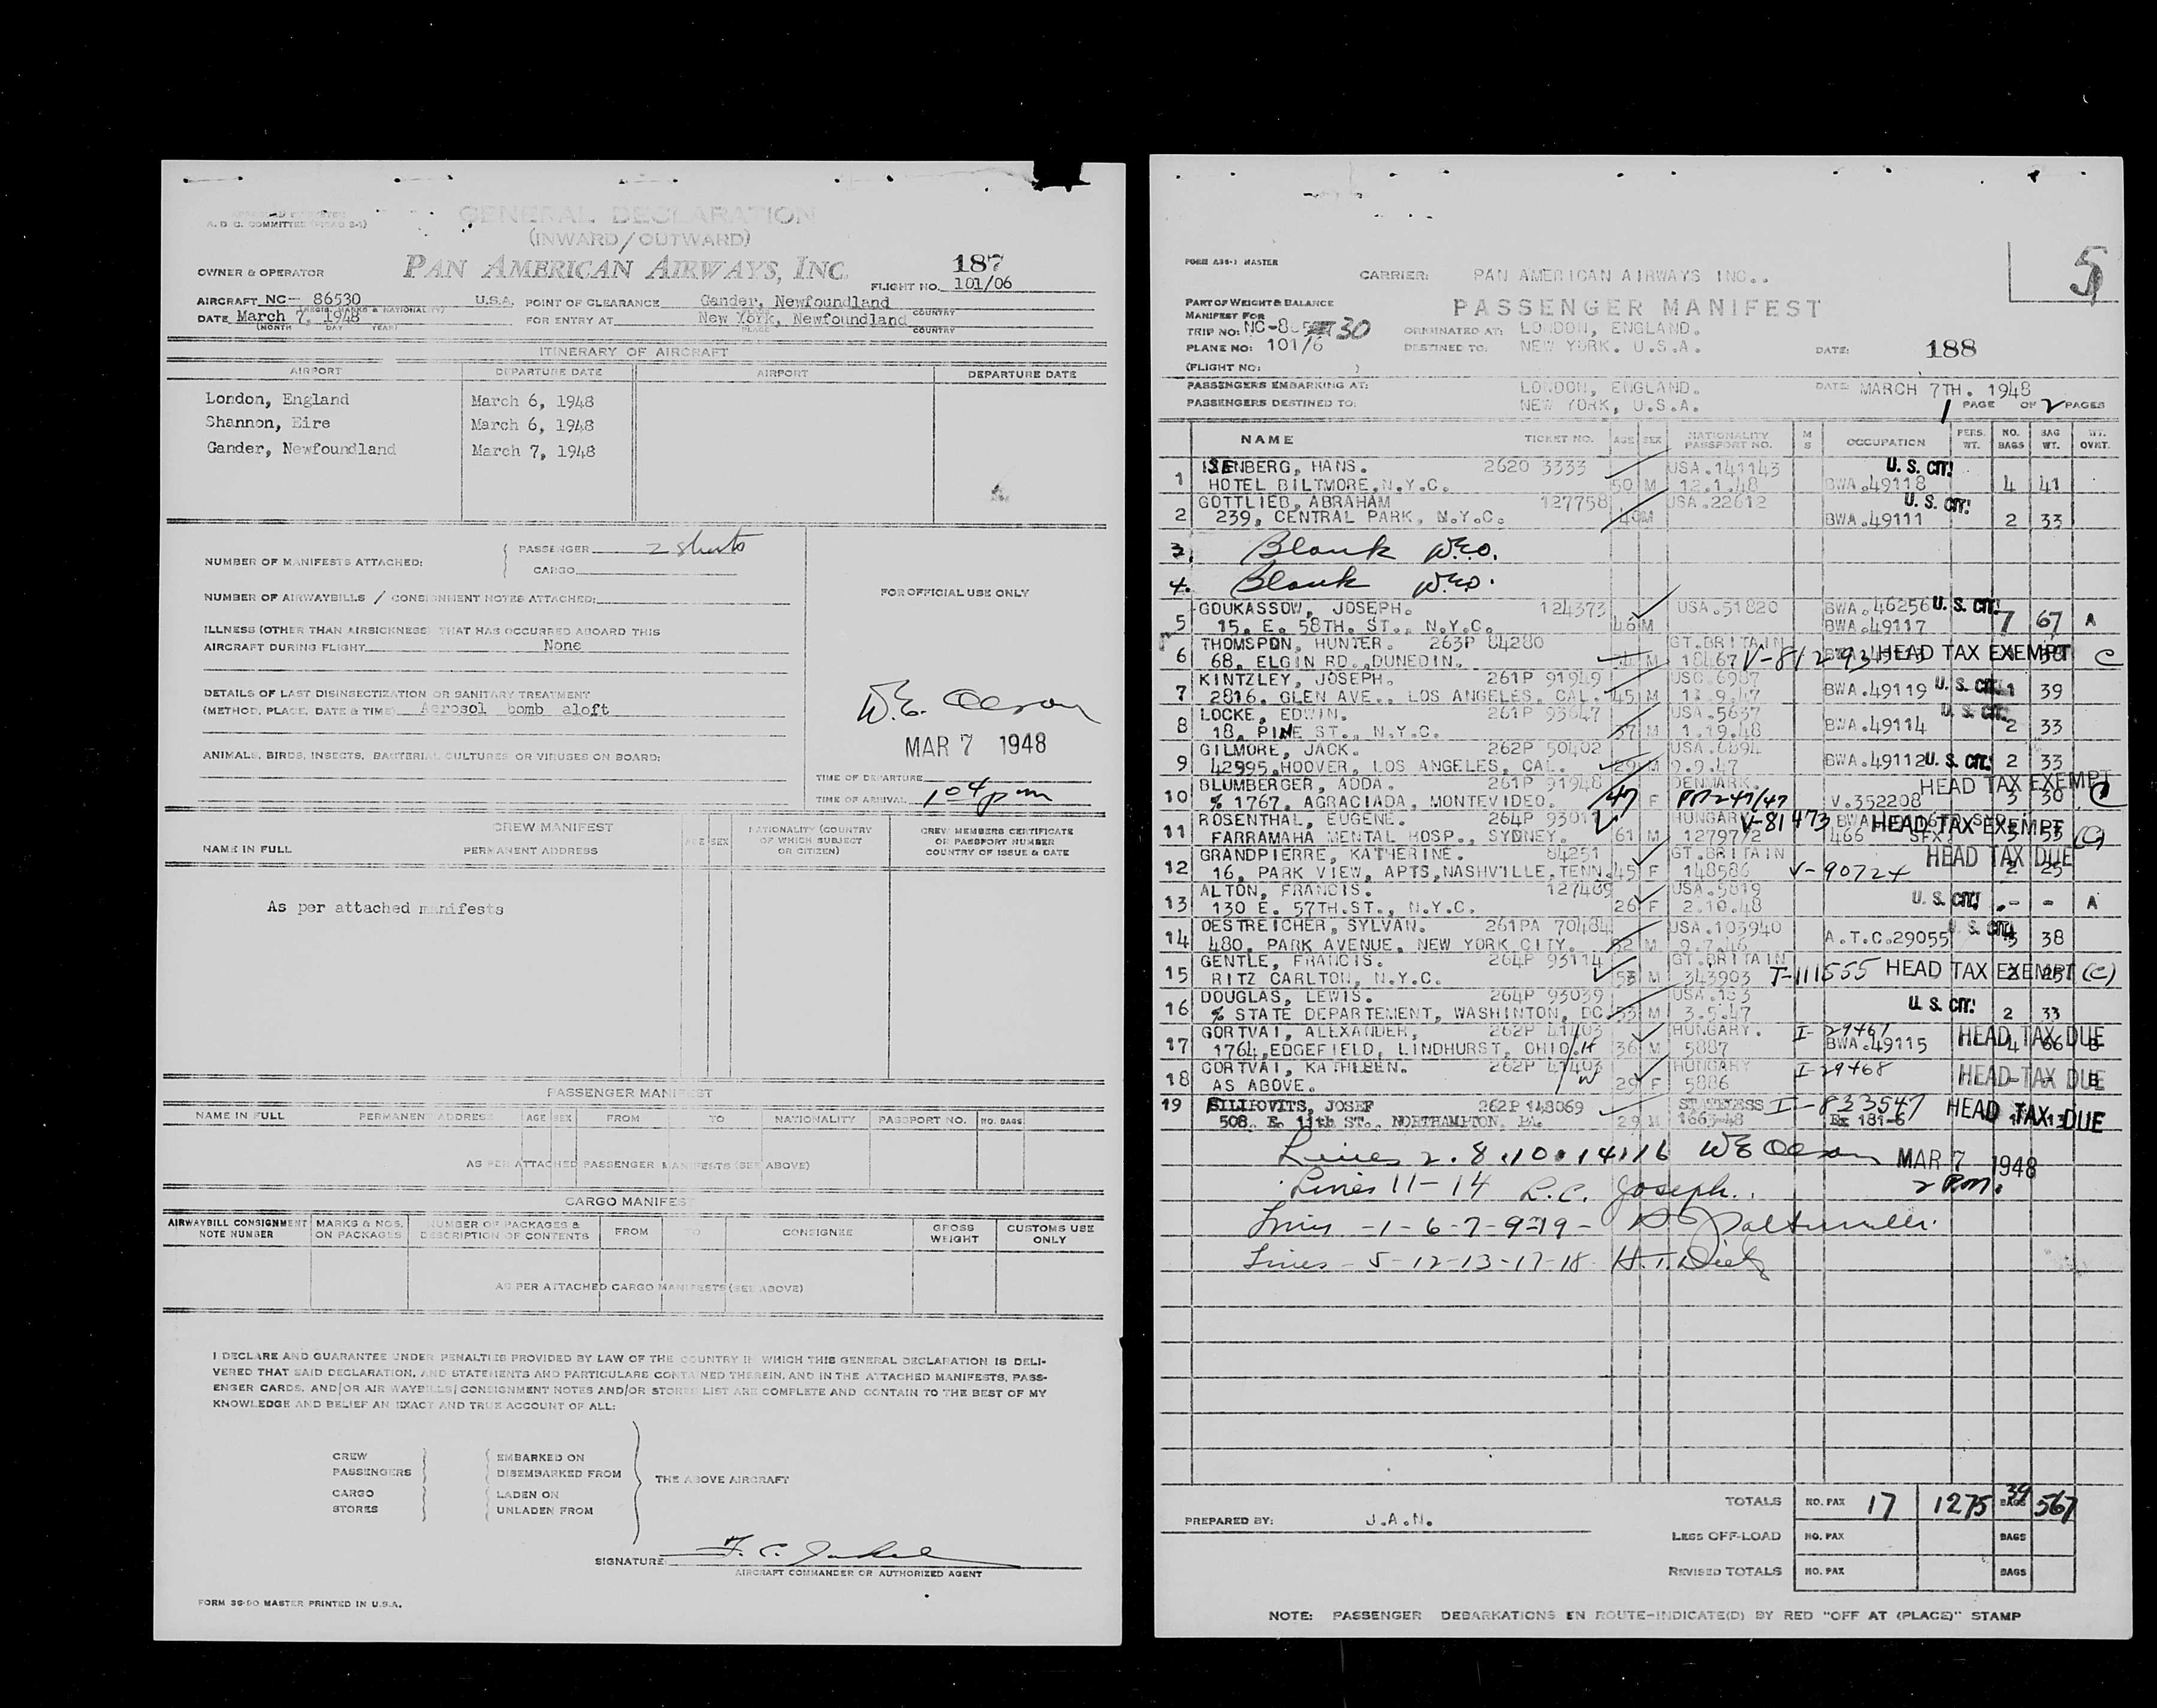 A. D. C. COMMITTEE
GENERAL DECLARATION
(INWARD/OUTWARD)
OWNER & OPERATOR
PAN AMERICAN AIRWAYS, INC.
187
FLIGHT NO. 101/06
AIRCRAFT NC- 86530 U.S.A. POINT OF CLEARANCE Gander, Newfoundland
(REGIS. MARKS & NATIONALITY) COUNTRY
DATE March 7, 1948 FOR ENTRY AT New York, Newfoundland
(MONTH DAY YEAR) PLACE COUNTRY
ITINERARY OF AIRCRAFT
AIRPORT DEPARTURE DATE AIRPORT DEPARTURE DATE
London, England March 6, 1948
Shannon, Eire March 6, 1948
Gander, Newfoundland March 7, 1948
NUMBER OF MANIFESTS ATTACHED: PASSENGER 2 sheets
CARGO
NUMBER OF AIRWAYBILLS / CONSIGNMENT NOTES ATTACHED:
FOR OFFICIAL USE ONLY
ILLNESS (OTHER THAN AIRSICKNESS) THAT HAS OCCURRED ABOARD THIS
AIRCRAFT DURING FLIGHT None
DETAILS OF LAST DISINSECTIZATION OR SANITARY TREATMENT
(METHOD, PLACE, DATE & TIME) Aerosol bomb aloft
W.E. Olson
MAR 7 1948
ANIMALS, BIRDS, INSECTS, BACTERIAL CULTURES OR VIRUSES ON BOARD:
TIME OF DEPARTURE
TIME OF ARRIVAL 1 04 pm
CREW MANIFEST
NAME IN FULL PERMANENT ADDRESS AGE SEX NATIONALITY (COUNTRY OF WHICH SUBJECT OR CITIZEN) CREW MEMBERS CERTIFICATE OR PASSPORT NUMBER COUNTRY OF ISSUE & DATE
As per attached manifests
PASSENGER MANIFEST
NAME IN FULL PERMANENT ADDRESS AGE SEX FROM TO NATIONALITY PASSPORT NO. NO. BAGS
AS PER ATTACHED PASSENGER MANIFESTS (SEE ABOVE)
CARGO MANIFEST
AIRWAYBILL CONSIGNMENT NOTE NUMBER MARKS & NOS. ON PACKAGES NUMBER OF PACKAGES & DESCRIPTION OF CONTENTS FROM TO CONSIGNEE GROSS WEIGHT CUSTOMS USE ONLY
AS PER ATTACHED CARGO MANIFESTS (SEE ABOVE)
I DECLARE AND GUARANTEE UNDER PENALTIES PROVIDED BY LAW OF THE COUNTRY IN WHICH THIS GENERAL DECLARATION IS DELI-
VERED THAT SAID DECLARATION, AND STATEMENTS AND PARTICULARS CONTAINED THEREIN, AND IN THE ATTACHED MANIFESTS, PASS-
ENGER CARDS, AND/OR AIR WAYBILLS/CONSIGNMENT NOTES AND/OR STORES LIST ARE COMPLETE AND CONTAIN TO THE BEST OF MY
KNOWLEDGE AND BELIEF AN EXACT AND TRUE ACCOUNT OF ALL:
CREW EMBARKED ON
PASSENGERS DISEMBARKED FROM THE ABOVE AIRCRAFT
CARGO LADEN ON
STORES UNLADEN FROM
SIGNATURE
AIRCRAFT COMMANDER OR AUTHORIZED AGENT
FORM 36-90 MASTER PRINTED IN U.S.A.
5
FORM A36-1 MASTER
CARRIER: PAN AMERICAN AIRWAYS INC..
PART OF WEIGHT & BALANCE
MANIFEST FOR
PASSENGER MANIFEST
TRIP NO: NC-86530 ORIGINATED AT: LONDON, ENGLAND.
PLANE NO: 101/6 DESTINED TO: NEW YORK. U.S.A. DATE: 188
(FLIGHT NO: )
PASSENGERS EMBARKING AT: LONDON, ENGLAND. DATE: MARCH 7TH. 1948
PASSENGERS DESTINED TO: NEW YORK, U.S.A. 1 PAGE OF 2 PAGES
NAME TICKET NO. AGE SEX NATIONALITY PASSPORT NO. M S OCCUPATION PERS. WT. NO. BAGS BAG WT. WT. OVRT.
1 ISENBERG, HANS. 2620 3333 USA.141143 U. S. CIT!
HOTEL BILTMORE,N.Y.C. 50 M 12.1.48 BWA.49118 4 41
2 GOTTLIEB, ABRAHAM 127758 USA.22612 U. S. CIT!
239, CENTRAL PARK, N.Y.C. M BWA.49111 2 33
3. Blank W.E.O.
4. Blank W.E.O.
5 GOUKASSOW, JOSEPH. 124373 USA.51820 BWA.46256 U. S. CIT!
15, E. 58TH. ST., N.Y.C. 46 M BWA.49117 7 67 A
6 THOMSPON, HUNTER. 263P 84280 GT.BRITAIN
68, ELGIN RD.,DUNEDIN. M 18467 V-81293 HEAD TAX EXEMPT C
7 KINTZLEY, JOSEPH. 261P 91949 USC.6987
2816. GLEN AVE., LOS ANGELES, CAL. 45 M 11.9.47 BWA.49119 U. S. CIT. 1 39
8 LOCKE, EDWIN. 261P 93647 USA.5637 U. S. CIT.
18, PINE ST., N.Y.C. 37 M 1.19.48 BWA.49114 2 33
9 GILMORE, JACK. 262P 50402 USA.6894
42995,HOOVER, LOS ANGELES, CAL. 29 M 9.9.47 BWA.49112 U. S. CIT! 2 33
10 BLUMBERGER, ADDA. 261P 91948 DENMARK. HEAD TAX EXEMPT
% 1767, AGRACIADA, MONTEVIDEO. 47 F 247/47 V.352208 3 30 C
11 ROSENTHAL, EUGENE. 264P 93017 HUNGARY V-81473 HEAD TAX EXEMPT
FARRAMAHA MENTAL HOSP., SYDNEY. 61 M 127972 466 SFX. 33 (C)
12 GRANDPIERRE, KATHERINE. 84251 GT.BRITAIN HEAD TAX DUE
16, PARK VIEW, APTS,NASHVILLE,TENN. 45 F 148586 V-90724 2 25
13 ALTON, FRANCIS. 127489 USA.5819
130 E. 57TH.ST., N.Y.C. 26 F 2.10.48 U. S. CIT! - - A
14 OESTREICHER, SYLVAN. 261PA 70484 USA.103940 U. S. CIT.
480, PARK AVENUE, NEW YORK CITY. 52 M 9.7.46 A.T.C.29055 3 38
15 GENTLE, FRANCIS. 264P 93114 GT.BRITAIN
RITZ CARLTON, N.Y.C. 53 M 343903 T-111555 HEAD TAX EXEMPT (C)
16 DOUGLAS, LEWIS. 264P 93039 USA.183
% STATE DEPARTEMENT, WASHINTON, DC. 53 M 3.5.47 U. S. CIT! 2 33
17 GORTVAI, ALEXANDER, 262P 41403 HUNGARY. I-29467 HEAD TAX DUE
1764,EDGEFIELD, LINDHURST, OHIO. H 36 M 5887 BWA.49115 4 66 B
18 GORTVAI, KATHLEEN. 262P 41403 HUNGARY I-29468 HEAD TAX DUE
AS ABOVE. W 29 F 5886 B
19 SILIBOVITS, JOSEF 262P 148069 STATELESS I-833547 HEAD TAX DUE
508. E. 11th ST., NORTHAMPTON, PA. 29 M 1663-48 Ex 181-6 13
Lines 2.8.10.14.16 WE Olson MAR 7 1948
Lines 11-14 R.C. Joseph. 2 P.M.
Lines -1-6-7-9-19-
Lines -5-12-13-17-18 H.T. Dietz
TOTALS NO. PAX 17 1275 BAGS 39 567
PREPARED BY: J.A.N.
LESS OFF-LOAD NO. PAX BAGS
REVISED TOTALS NO. PAX BAGS
NOTE: PASSENGER DEBARKATIONS EN ROUTE-INDICATE(D) BY RED "OFF AT (PLACE)" STAMP